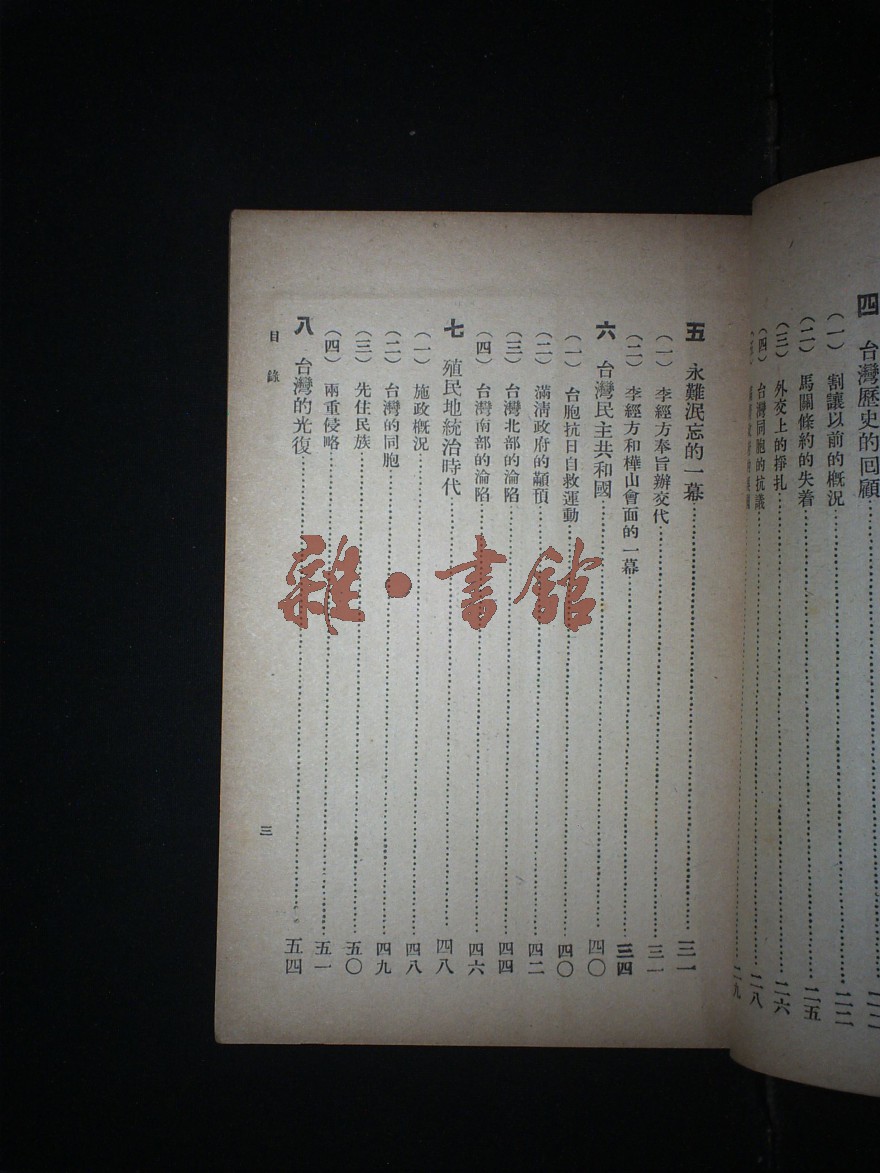 四 台灣歷史的回顧……二二
（一）割讓以前的概況……二二
（二）馬關條約的失着……二五
（三）外交上的掙扎……二六
（四）台灣同胞的抗議……二八
……二九
五 永難泯忘的一幕……三一
（一）李經方奉旨辦交代……三一
（二）李經方和樺山會面的一幕……三四
六 台灣民主共和國……四〇
（一）台胞抗日自救運動……四〇
（二）滿清政府的顢頇……四二
（三）台灣北部的淪陷……四四
（四）台灣南部的淪陷……四六
七 殖民地統治時代……四八
（一）施政概況……四八
（二）台灣的同胞……四九
（三）先住民族……五〇
（四）兩重侵略……五一
八 台灣的光復……五四
目錄
三
雜·書館